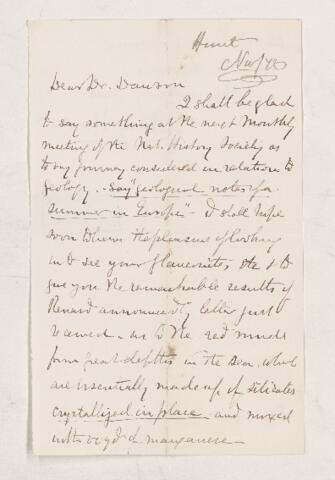 Hunt
Nov/78
Dear Dr. Dawson
I shall be glad
to say something at the next Monthly
meeting of the Nat. History Society as
to my journey considered in relation to
geology. - Say "geological notes of a
summer in Europe" - I shall hope
soon to have the pleasure of looking
in to see your glauconites, &c & to
give you the remarkable results of
Renard announced by letter just
received - as to the red muds
from great depths in the sea, which
are essentially made up of silicates
crystallized in place and mixed
with oxyd of manganese -